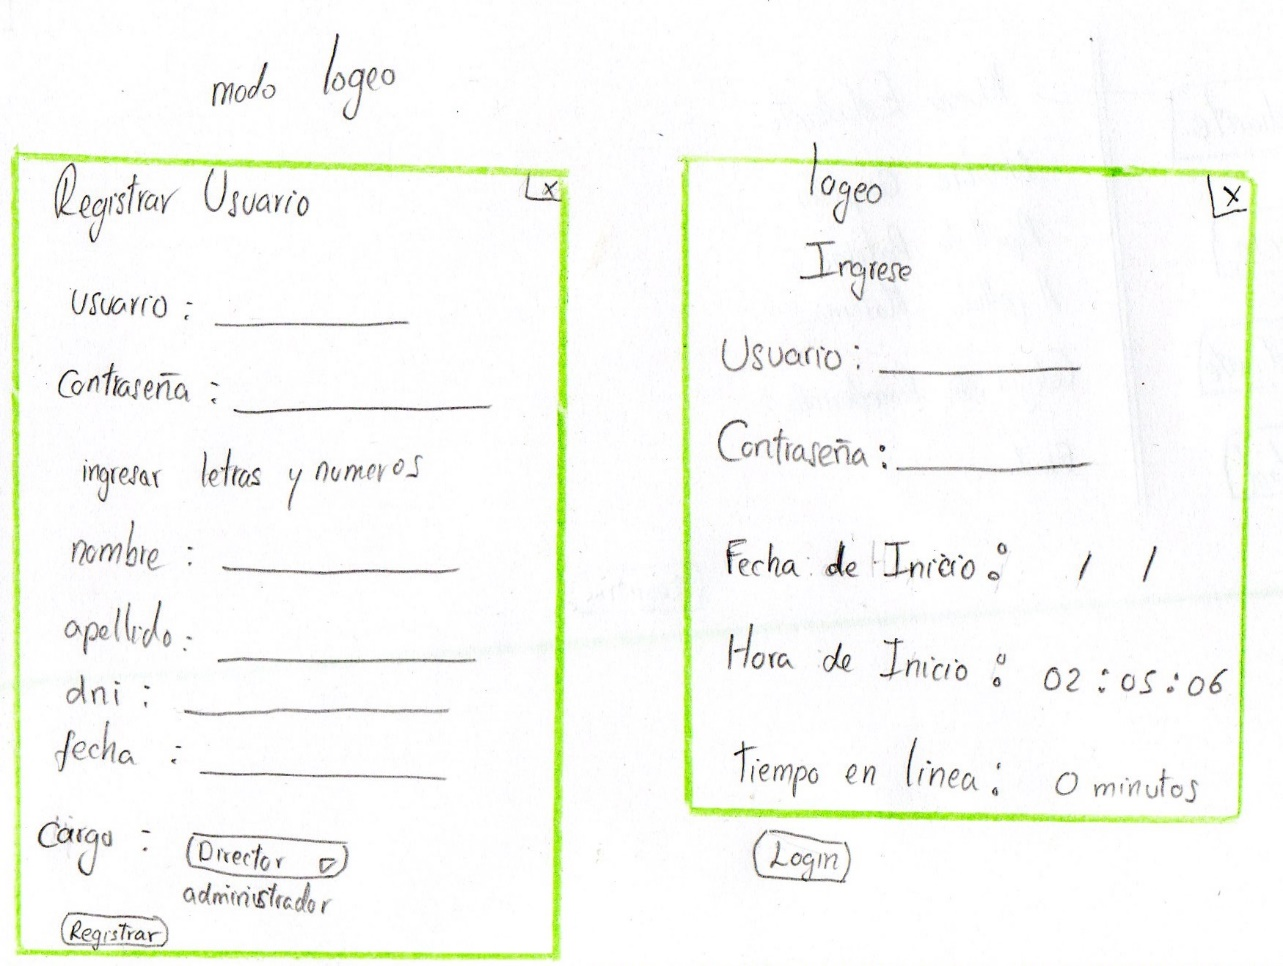 modo logeo
Registrar Usuario x
usuario :
Contraseña :
ingresar letras y numeros
nombre :
apellido :
dni :
fecha :
Cargo : Director
administrador
Registrar
logeo x
Ingrese
Usuario :
Contraseña :
Fecha de Inicio : / /
Hora de Inicio : 02 : 05 : 06
tiempo en linea : 0 minutos
Login